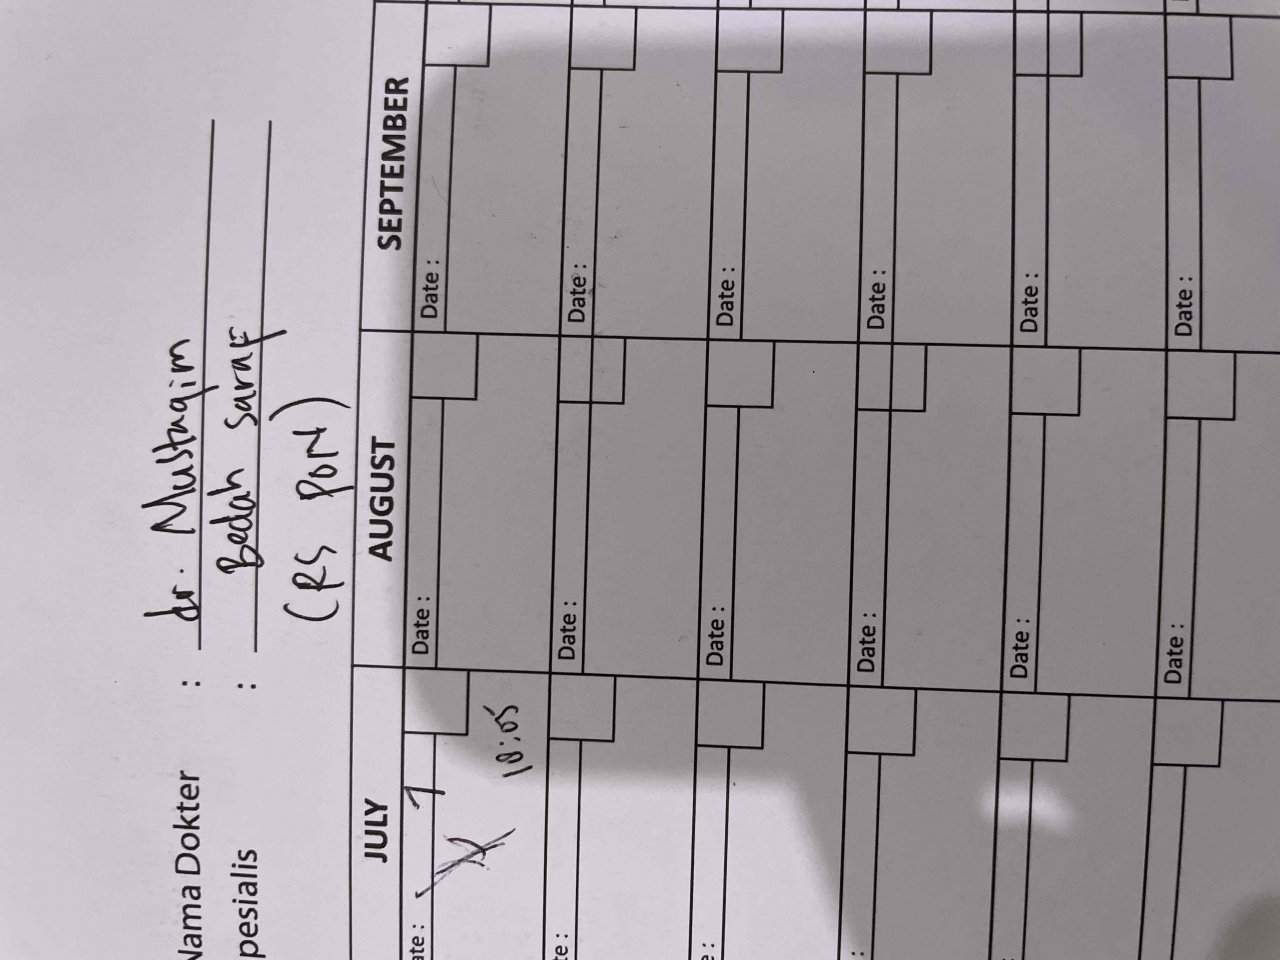 Nama Dokter : dr. Mustaqim
pesialis : Bedah saraf
(RS PON)
JULY AUGUST SEPTEMBER
ate : 7 Date : Date :
18:05
te : Date : Date :
e : Date : Date :
: Date : Date :
Date : Date :
Date : Date :